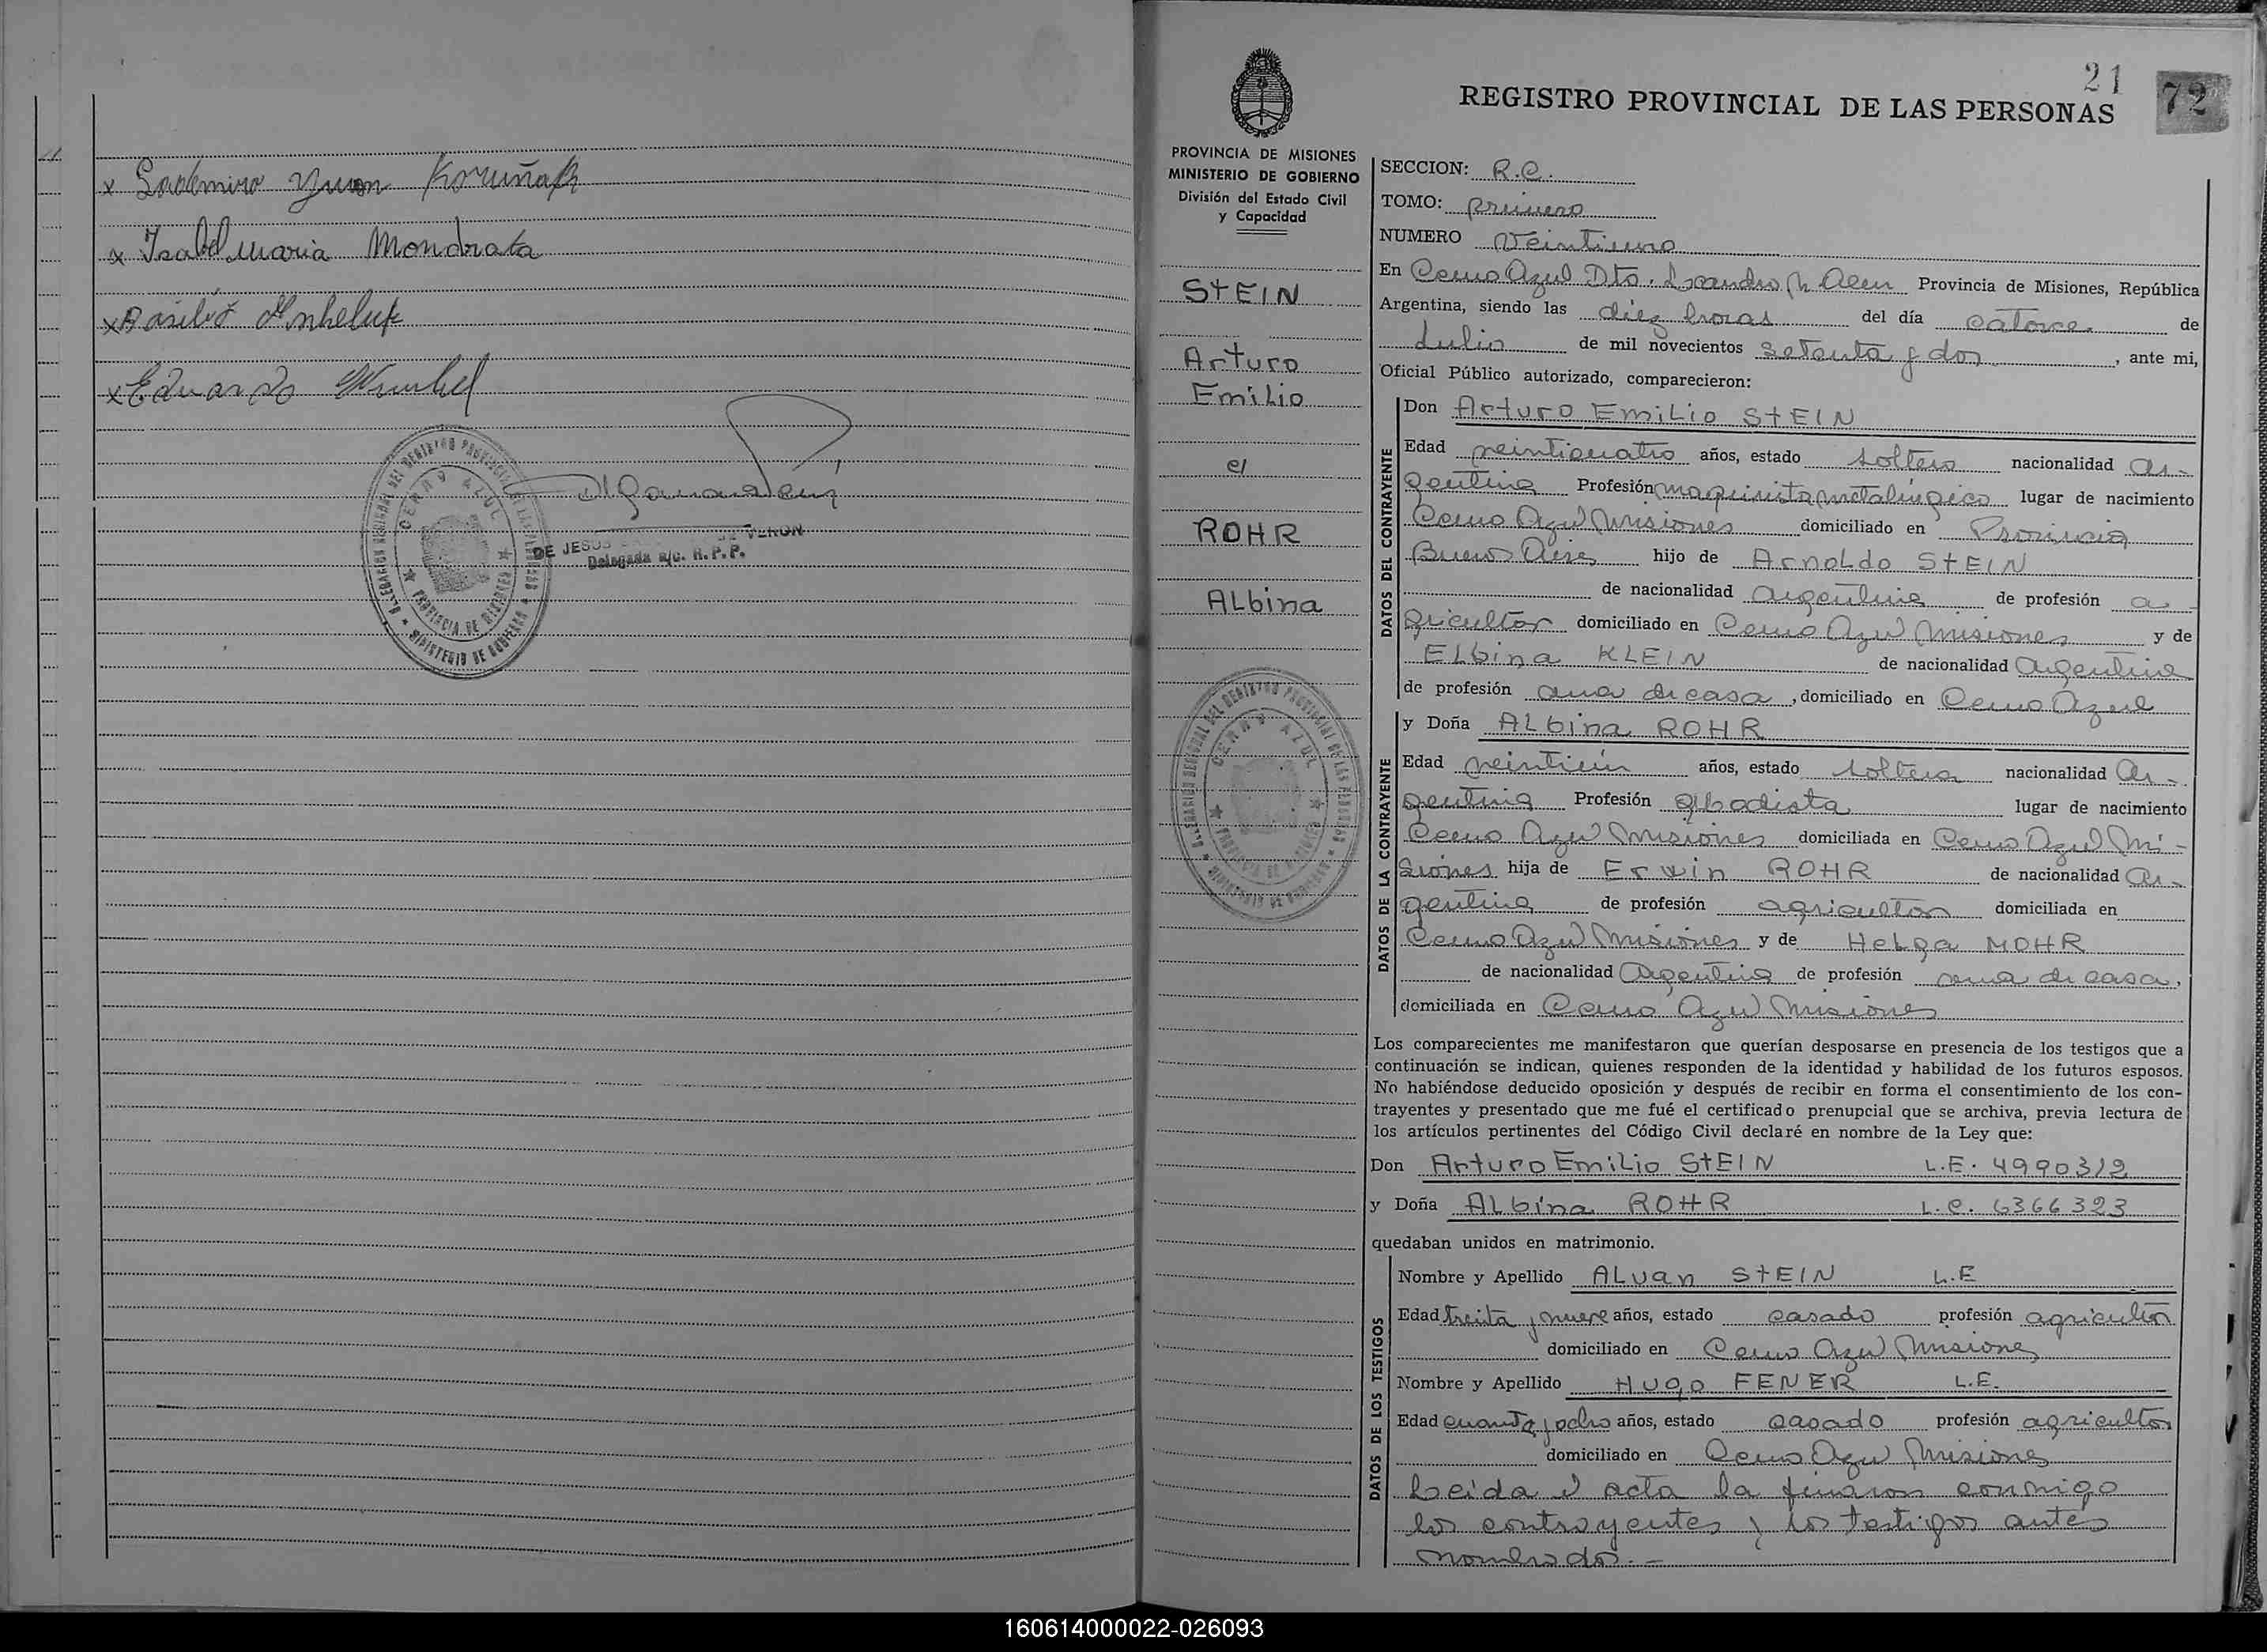 x Ladomiro Yuan Koruñak
x Isabel maria Mondrata
x Basilio
x Eduardo
DELEGACION REGIONAL DEL REGISTRO PROVINCIAL DE LAS PERSONAS
CERRO AZUL
PROVINCIA DE MISIONES
MINISTERIO DE GOBIERNO
DE JESUS VERON
Delegada a/c. R.P.P.
21
72
REGISTRO PROVINCIAL DE LAS PERSONAS
PROVINCIA DE MISIONES
MINISTERIO DE GOBIERNO
División del Estado Civil
y Capacidad
STEIN
Arturo
Emilio
c/
ROHR
ALbina
DELEGACION REGIONAL DEL REGISTRO PROVINCIAL DE LAS PERSONAS
CERRO AZUL
PROVINCIA DE MISIONES
MINISTERIO DE GOBIERNO
SECCION: R.C.
TOMO: primero
NUMERO Veintiuno
En Cerro Azul Dto. Leandro N Alem Provincia de Misiones, República
Argentina, siendo las diez horas del día catorce de
Julio de mil novecientos setenta y dos, ante mi,
Oficial Público autorizado, comparecieron:
DATOS DEL CONTRAYENTE
Don Arturo EmiLio StEIN
Edad veinticuatro años, estado soltero nacionalidad ar-
gentina Profesión maquinista metalúrgico lugar de nacimiento
Cerro Azul Misiones domiciliado en Provincia
Buenos Aires hijo de ArnoLdo StEIN
de nacionalidad argentina de profesión a-
gricultor domiciliado en Cerro Azul Misiones y de
ELbina KLEIN de nacionalidad argentina
de profesión ama de casa, domiciliado en Cerro Azul
DATOS DE LA CONTRAYENTE
y Doña ALbina ROHR
Edad veintiún años, estado soltera nacionalidad ar-
gentina Profesión lugar de nacimiento
Cerro Azul Misiones domiciliada en Cerro Azul Mi-
siones hija de Erwin ROHR de nacionalidad ar-
gentina de profesión agricultor domiciliada en
Cerro Azul Misiones y de HeLga MOHR
de nacionalidad Argentina de profesión ama de casa,
domiciliada en Cerro Azul Misiones
Los comparecientes me manifestaron que querían desposarse en presencia de los testigos que a
continuación se indican, quienes responden de la identidad y habilidad de los futuros esposos.
No habiéndose deducido oposición y después de recibir en forma el consentimiento de los con-
trayentes y presentado que me fué el certificado prenupcial que se archiva, previa lectura de
los artículos pertinentes del Código Civil declaré en nombre de la Ley que:
Don Arturo EmiLio StEIN L.E. 4990312
y Doña ALbina ROHR L.C. 6366323
quedaban unidos en matrimonio.
DATOS DE LOS TESTIGOS
Nombre y Apellido ALvan StEIN L.E
Edad treita y nueve años, estado casado profesión agricultor
domiciliado en Cerro Azul Misiones
Nombre y Apellido HUgo FENER L.E.
Edad cuarenta y ocho años, estado casado profesión agricultor
domiciliado en Cerro Azul Misiones
Leida el acta la firman conmigo
los contrayentes y los testigos antes
nombrados.-
160614000022-026093